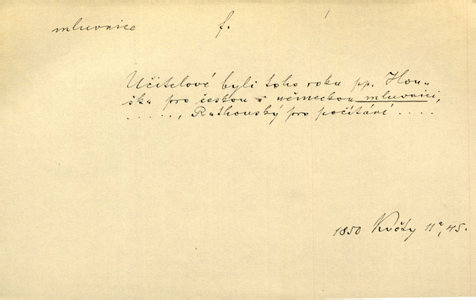 mluvnice f.
Učitelové byli toho roku pp. Hon-
ska pro českou i německou mluvnici,
....., Rathouský pro počítání ....
1850 Květy 11a, 45.